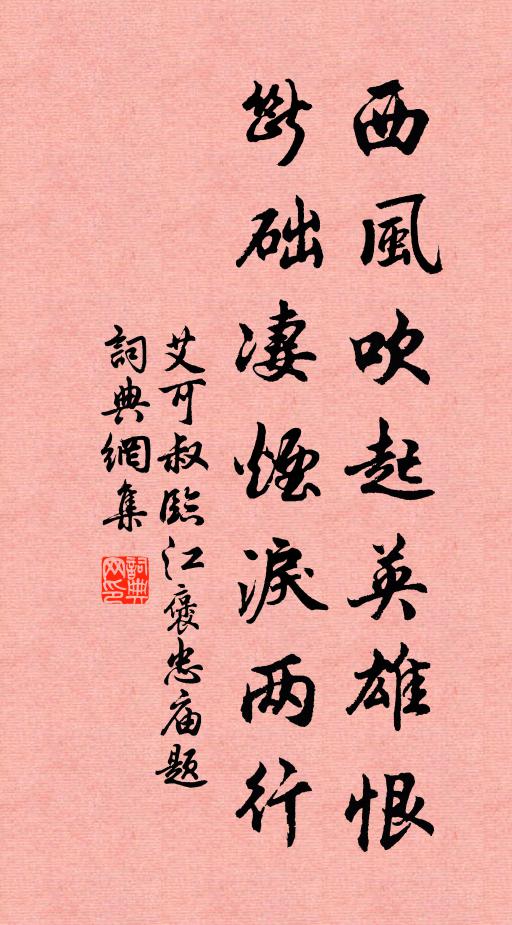 西風吹起英雄恨
斷础凄煙淚两行
艾可叔臨江褒忠庙題
詞典網集
詞典网印